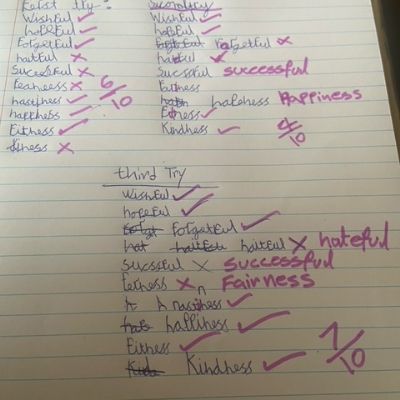 First try:
Wishful
hopeful
Forgetful
hatful
Sucessful
Feaness
hasiness
happiness
Fitness
Kiness
6/10
Secondtry
Wishful
hopeful
Forgetful
hatful
Sucssful successful
Fitness
Happiness
Fitness
Kindness
4/10
third Try
Wishful
hopeful
Forgetful
hatful hateful
Sucssful successful
Feness Fairness
happiness
Fitness
Kindness
7/10